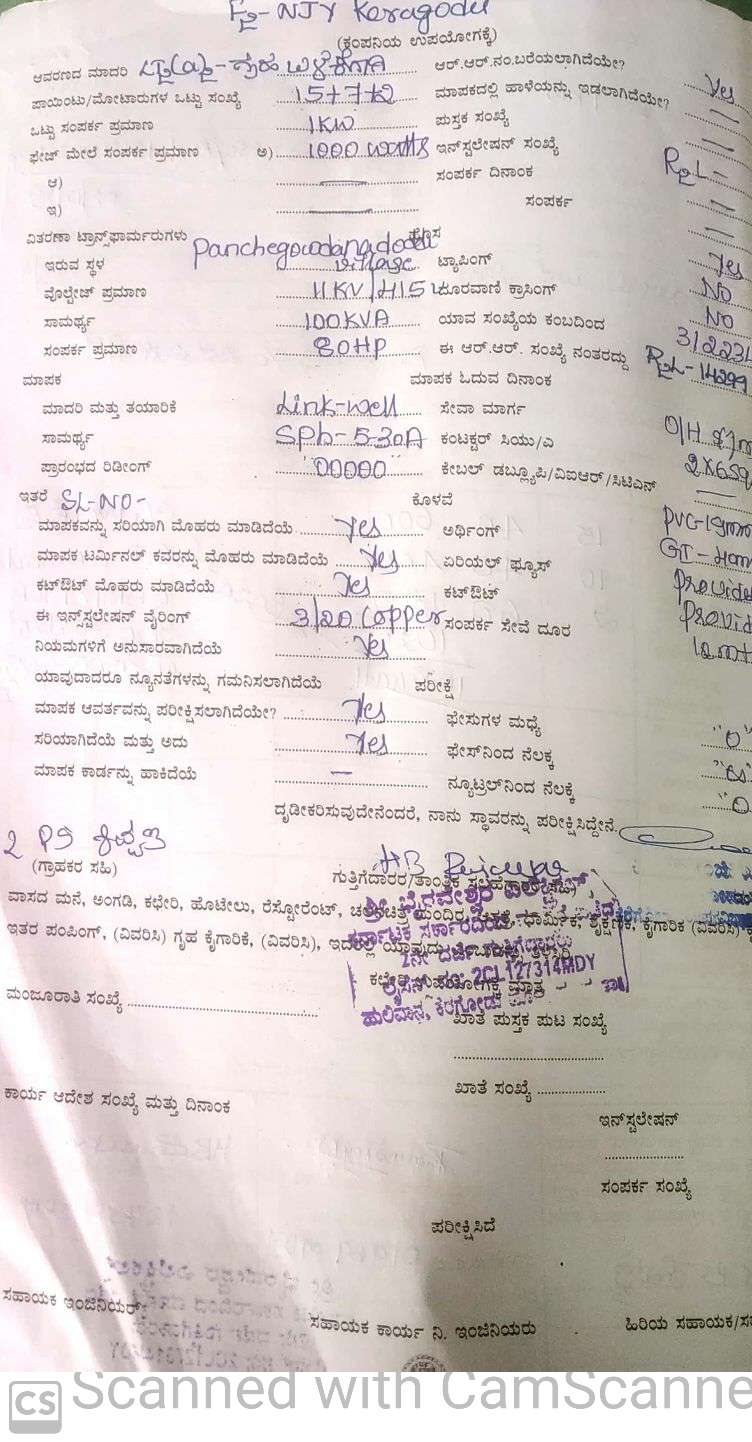 F2-NJY Keragodu
(ಕಂಪನಿಯ ಉಪಯೋಗಕ್ಕೆ)
ಆವರಣದ ಮಾದರಿ ಗೃಹ ಬಳಕೆಗಾಗಿ ಆರ್.ಆರ್.ನಂ.ಬರೆಯಲಾಗಿದೆಯೇ? Yes
ಪಾಯಿಂಟು/ಮೋಟಾರುಗಳ ಒಟ್ಟು ಸಂಖ್ಯೆ 15+7+2 ಮಾಪಕದಲ್ಲಿ ಹಾಳೆಯನ್ನು ಇಡಲಾಗಿದೆಯೇ? —
ಒಟ್ಟು ಸಂಪರ್ಕ ಪ್ರಮಾಣ 1KW ಪುಸ್ತಕ ಸಂಖ್ಯೆ —
ಫೇಜ್ ಮೇಲೆ ಸಂಪರ್ಕ ಪ್ರಮಾಣ ಅ) 1000 watts ಇನ್‌ಸ್ಟಲೇಷನ್ ಸಂಖ್ಯೆ R2L-
ಆ) — ಸಂಪರ್ಕ ದಿನಾಂಕ —
ಇ) — ಸಂಪರ್ಕ —
ವಿತರಣಾ ಟ್ರಾನ್ಸ್‌ಫಾರ್ಮರುಗಳು Panchegowdanadoddi ಹೊಸ Yes
ಇರುವ ಸ್ಥಳ village ಟ್ಯಾಪಿಂಗ್ NO
ವೊಲ್ಟೇಜ್ ಪ್ರಮಾಣ 11KV/415V ದೂರವಾಣಿ ಕ್ರಾಸಿಂಗ್ NO
ಸಾಮರ್ಥ್ಯ 100KVA ಯಾವ ಸಂಖ್ಯೆಯ ಕಂಬದಿಂದ
ಸಂಪರ್ಕ ಪ್ರಮಾಣ 80HP ಈ ಆರ್.ಆರ್. ಸಂಖ್ಯೆ ನಂತರದ್ದು R2L-14299
ಮಾಪಕ ಮಾಪಕ ಓದುವ ದಿನಾಂಕ
ಮಾದರಿ ಮತ್ತು ತಯಾರಿಕೆ Link-well ಸೇವಾ ಮಾರ್ಗ O/H
ಸಾಮರ್ಥ್ಯ SPh-5-30A ಕಂಟಕ್ಟರ್ ಸಿಯು/ಎ 2x6SQ
ಪ್ರಾರಂಭದ ರಿಡೀಂಗ್ "00000" ಕೇಬಲ್ ಡಬ್ಲ್ಯೂಪಿ/ವಿಐಆರ್/ಸಿಟಿಎನ್ —
ಇತರೆ SL-NO- ಕೊಳವೆ PVC-19mm
ಮಾಪಕವನ್ನು ಸರಿಯಾಗಿ ಮೊಹರು ಮಾಡಿದೆಯೆ Yes ಅರ್ಥಿಂಗ್
ಮಾಪಕ ಟರ್ಮಿನಲ್ ಕವರನ್ನು ಮೊಹರು ಮಾಡಿದೆಯೆ Yes ಏರಿಯಲ್ ಫ್ಯೂಸ್ Provide
ಕಟ್‌ಔಟ್ ಮೊಹರು ಮಾಡಿದೆಯೆ Yes ಕಟ್‌ಔಟ್ Provid
ಈ ಇನ್ಸ್‌ಟಲೇಷನ್ ವೈರಿಂಗ್ 3/20 Copper ಸಂಪರ್ಕ ಸೇವೆ ದೂರ
ನಿಯಮಗಳಿಗೆ ಅನುಸಾರವಾಗಿದೆಯೆ Yes
ಯಾವುದಾದರೂ ನ್ಯೂನತೆಗಳನ್ನು ಗಮನಿಸಲಾಗಿದೆಯೆ ಪರೀಕ್ಷೆ
ಮಾಪಕ ಆವರ್ತವನ್ನು ಪರೀಕ್ಷಿಸಲಾಗಿದೆಯೇ? Yes ಫೇಸುಗಳ ಮಧ್ಯೆ "0"
ಸರಿಯಾಗಿದೆಯೆ ಮತ್ತು ಅದು Yes ಫೇಸ್‌ನಿಂದ ನೆಲಕ್ಕೆ
ಮಾಪಕ ಕಾರ್ಡನ್ನು ಹಾಕಿದೆಯೆ — ನ್ಯೂಟ್ರಲ್‌ನಿಂದ ನೆಲಕ್ಕೆ "0
ದೃಡೀಕರಿಸುವುದೇನೆಂದರೆ, ನಾನು ಸ್ಥಾವರನ್ನು ಪರೀಕ್ಷಿಸಿದ್ದೇನೆ.
(ಗ್ರಾಹಕರ ಸಹಿ) ಗುತ್ತಿಗೆದಾರರ/ತಾಂತ್ರಿಕ
ಶ್ರೀ ಭೈರವೇಶ್ವರ ಎಲೆಕ್ಟ್ರಿಕಲ್ಸ್
ವಾಸದ ಮನೆ, ಅಂಗಡಿ, ಕಛೇರಿ, ಹೊಟೇಲು, ರೆಸ್ಟೋರೆಂಟ್, ಚಲನಚಿತ್ರ ಮಂದಿರ, ಧಾರ್ಮಿಕ, ಶೈಕ್ಷಣಿಕ, ಕೈಗಾರಿಕ (ವಿವರಿಸಿ)
ಕರ್ನಾಟಕ ಸರ್ಕಾರದಿಂದ
ಇತರ ಪಂಪಿಂಗ್, (ವಿವರಿಸಿ) ಗೃಹ ಕೈಗಾರಿಕೆ, (ವಿವರಿಸಿ),
2ನೇ ದರ್ಜೆ
ಲೈಸೆನ್ಸ್ ನಂ. 2CL127314MDY
ಕಛೇರಿ ಉಪಯೋಗಕ್ಕೆ ಮಾತ್ರ
ಹುಲಿವಾನ, ಕೆರಗೋಡು
ಮಂಜೂರಾತಿ ಸಂಖ್ಯೆ ಖಾತೆ ಪುಸ್ತಕ ಪುಟ ಸಂಖ್ಯೆ
ಕಾರ್ಯ ಆದೇಶ ಸಂಖ್ಯೆ ಮತ್ತು ದಿನಾಂಕ ಖಾತೆ ಸಂಖ್ಯೆ
ಇನ್‌ಸ್ಟಲೇಷನ್
ಸಂಪರ್ಕ ಸಂಖ್ಯೆ
ಪರೀಕ್ಷಿಸಿದೆ
ಸಹಾಯಕ ಇಂಜಿನಿಯರ್ ಸಹಾಯಕ ಕಾರ್ಯ ನಿ. ಇಂಜಿನಿಯರು ಹಿರಿಯ ಸಹಾಯಕ/ಸ
CS Scanned with CamScanne